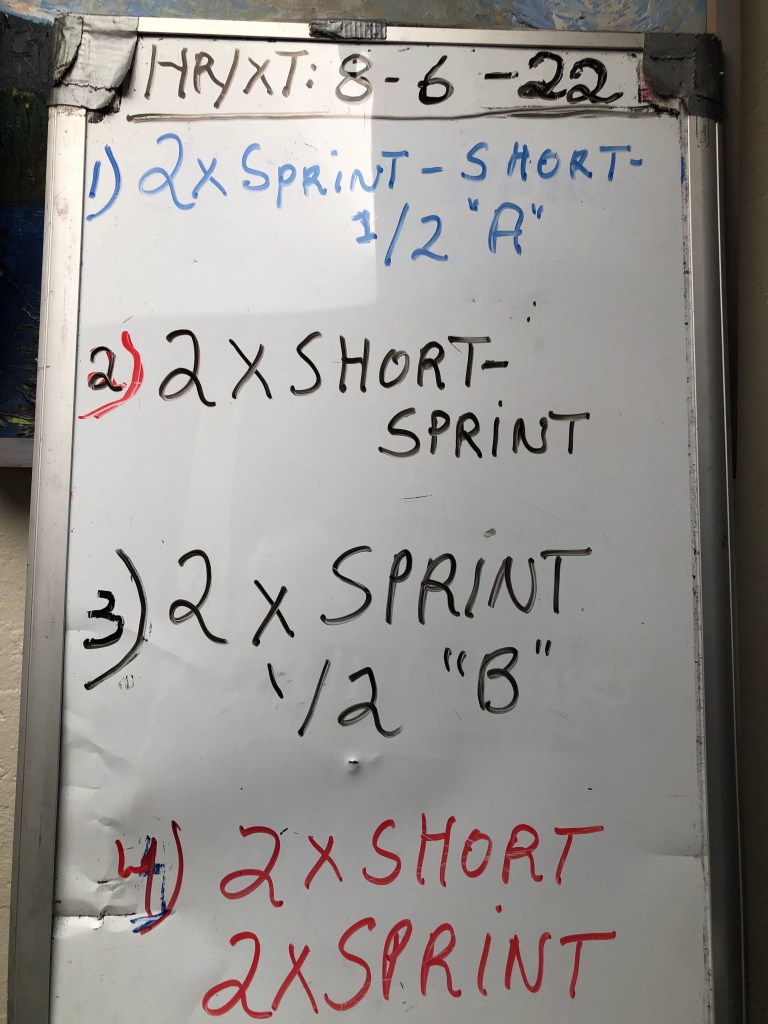 HR/XT: 8-6-22
1) 2x SPRINT-SHORT-
1/2 "A"
2) 2X SHORT-
SPRINT
3) 2x SPRINT
1/2 "B"
4) 2XSHORT
2XSPRINT